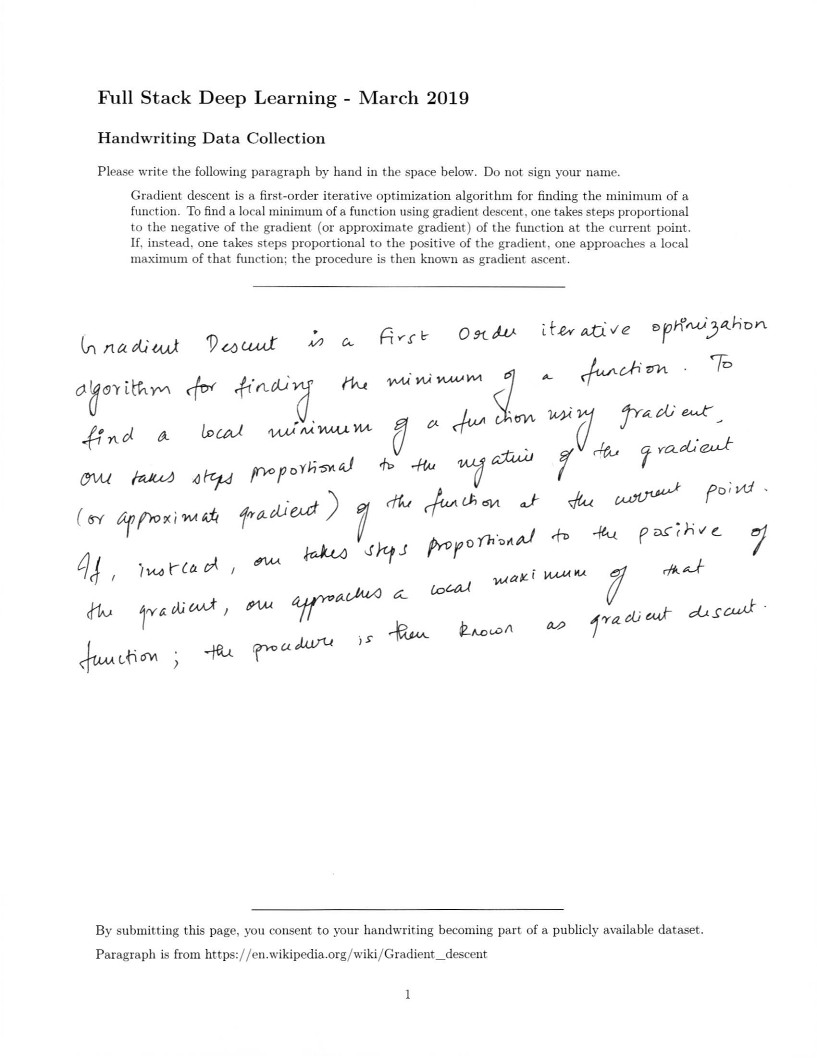 Full Stack Deep Learning - March 2019
Handwriting Data Collection
Please write the following paragraph by hand in the space below. Do not sign your name.
Gradient descent is a first-order iterative optimization algorithm for finding the minimum of a
function. To find a local minimum of a function using gradient descent, one takes steps proportional
to the negative of the gradient (or approximate gradient) of the function at the current point.
If, instead, one takes steps proportional to the positive of the gradient, one approaches a local
maximum of that function; the procedure is then known as gradient ascent.
Gradient Descent is a first Order iterative optimization
algorithm for finding the minimum of a function. To
find a local minimum of a function using gradient,
one takes steps proportional to the negative of the gradient
(or approximate gradient) of the function at the current point.
If, instead, one takes steps proportional to the positive of
the gradient, one approaches a local maximum of that
function; the procedure is then known as gradient descent.
By submitting this page, you consent to your handwriting becoming part of a publicly available dataset.
Paragraph is from https://en.wikipedia.org/wiki/Gradient_descent
1